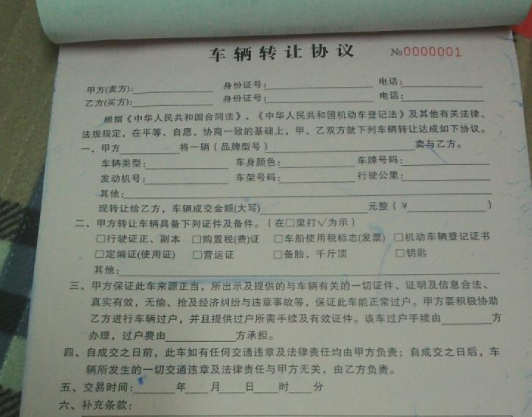 车辆转让协议 №0000001
甲方(卖方):____________ 身份证号:____________ 电话:____________
乙方(买方):____________ 身份证号:____________ 电话:____________
根据《中华人民共和国合同法》、《中华人民共和国机动车登记法》及其他有关法律、
法规规定，在平等、自愿、协商一致的基础上，甲、乙双方就下列车辆转让达成如下协议。
一、甲方____________将一辆（品牌型号）____________卖与乙方。
车辆类型:____________ 车身颜色:____________ 车牌号码:____________
发动机号:____________ 车架号码:____________ 行驶公里:____________
其他:____________
现转让给乙方，车辆成交金额(大写)____________元整（￥____________）
二、甲方转让车辆具备下列证件及备件。（在□里打√为示）
□行驶证正、副本 □购置税(费)证 □车船使用税标志(发票) □机动车辆登记证书
□定编证(使用证) □营运证 □备胎、千斤顶 □钥匙
其他:____________
三、甲方保证此车来源正当，所出示及提供的与车辆有关的一切证件、证明及信息合法、
真实有效，无偷、抢及经济纠纷与违章事故等，保证此车能正常过户。甲方要积极协助
乙方进行车辆过户，并且提供过户所需手续及有效证件。该车过户手续由________方
办理，过户费由________方承担。
四、自成交之日前，此车如有任何交通违章及法律责任均由甲方负责；自成交之日后，车
辆所发生的一切交通违章及法律责任与甲方无关，由乙方负责。
五、交易时间:______年____月____日____时____分
六、补充条款:____________